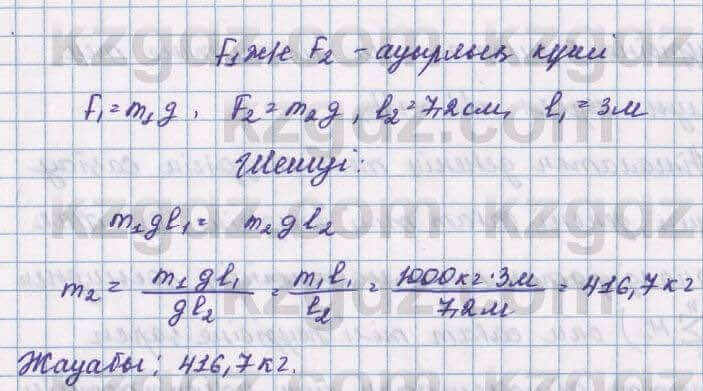 F₁ж/е F₂ - ауырлық күші
F₁ = m₁g, F₂ = m₂g, l₂ = 7,2 см, l₁ = 3 м
Шешуі:
m₁gl₁ = m₂gl₂
m₂ = m₁gl₁/gl₂ = m₁l₁/l₂ = 1000кг·3м/7,2м = 416,7кг
Жауабы: 416,7кг.